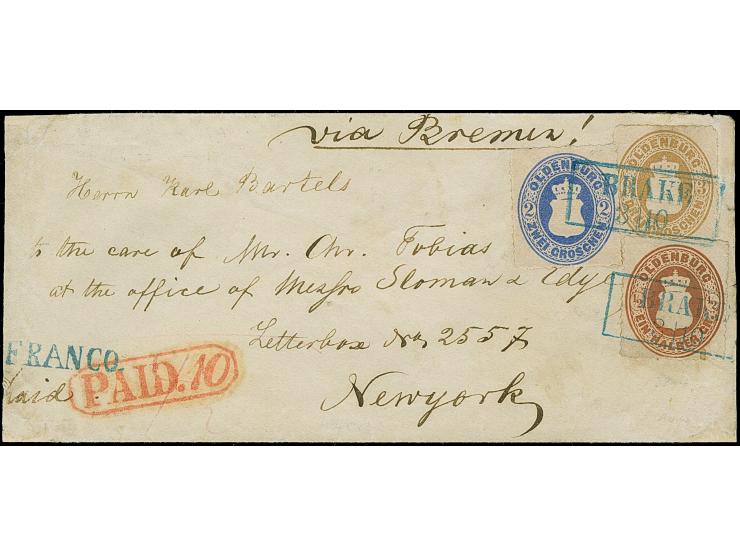 via Bremen!
Herrn Karl Bartels
to the care of Mr. Chr. Tobias
at the office of Messrs Sloman & Edye
Letterbox No 2557
Newyork
FRANCO.
PAID. 10
paid
OLDENBURG
2 2
ZWEI GROSCHEN
OLDENBURG
3
GROSCHEN
BRAKE
OLDENBURG
EIN HALBER
BRAKE